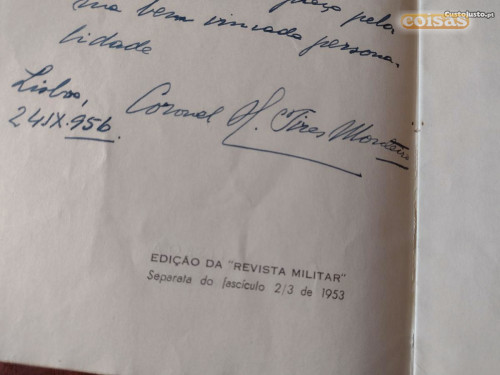 coisas
CustoJusto.pt
ma bem vincada persona-
lidade
Lisboa,
24.IX.956.
Coronel H. Pires Monteiro
EDIÇÃO DA "REVISTA MILITAR"
Separata do fascículo 2/3 de 1953